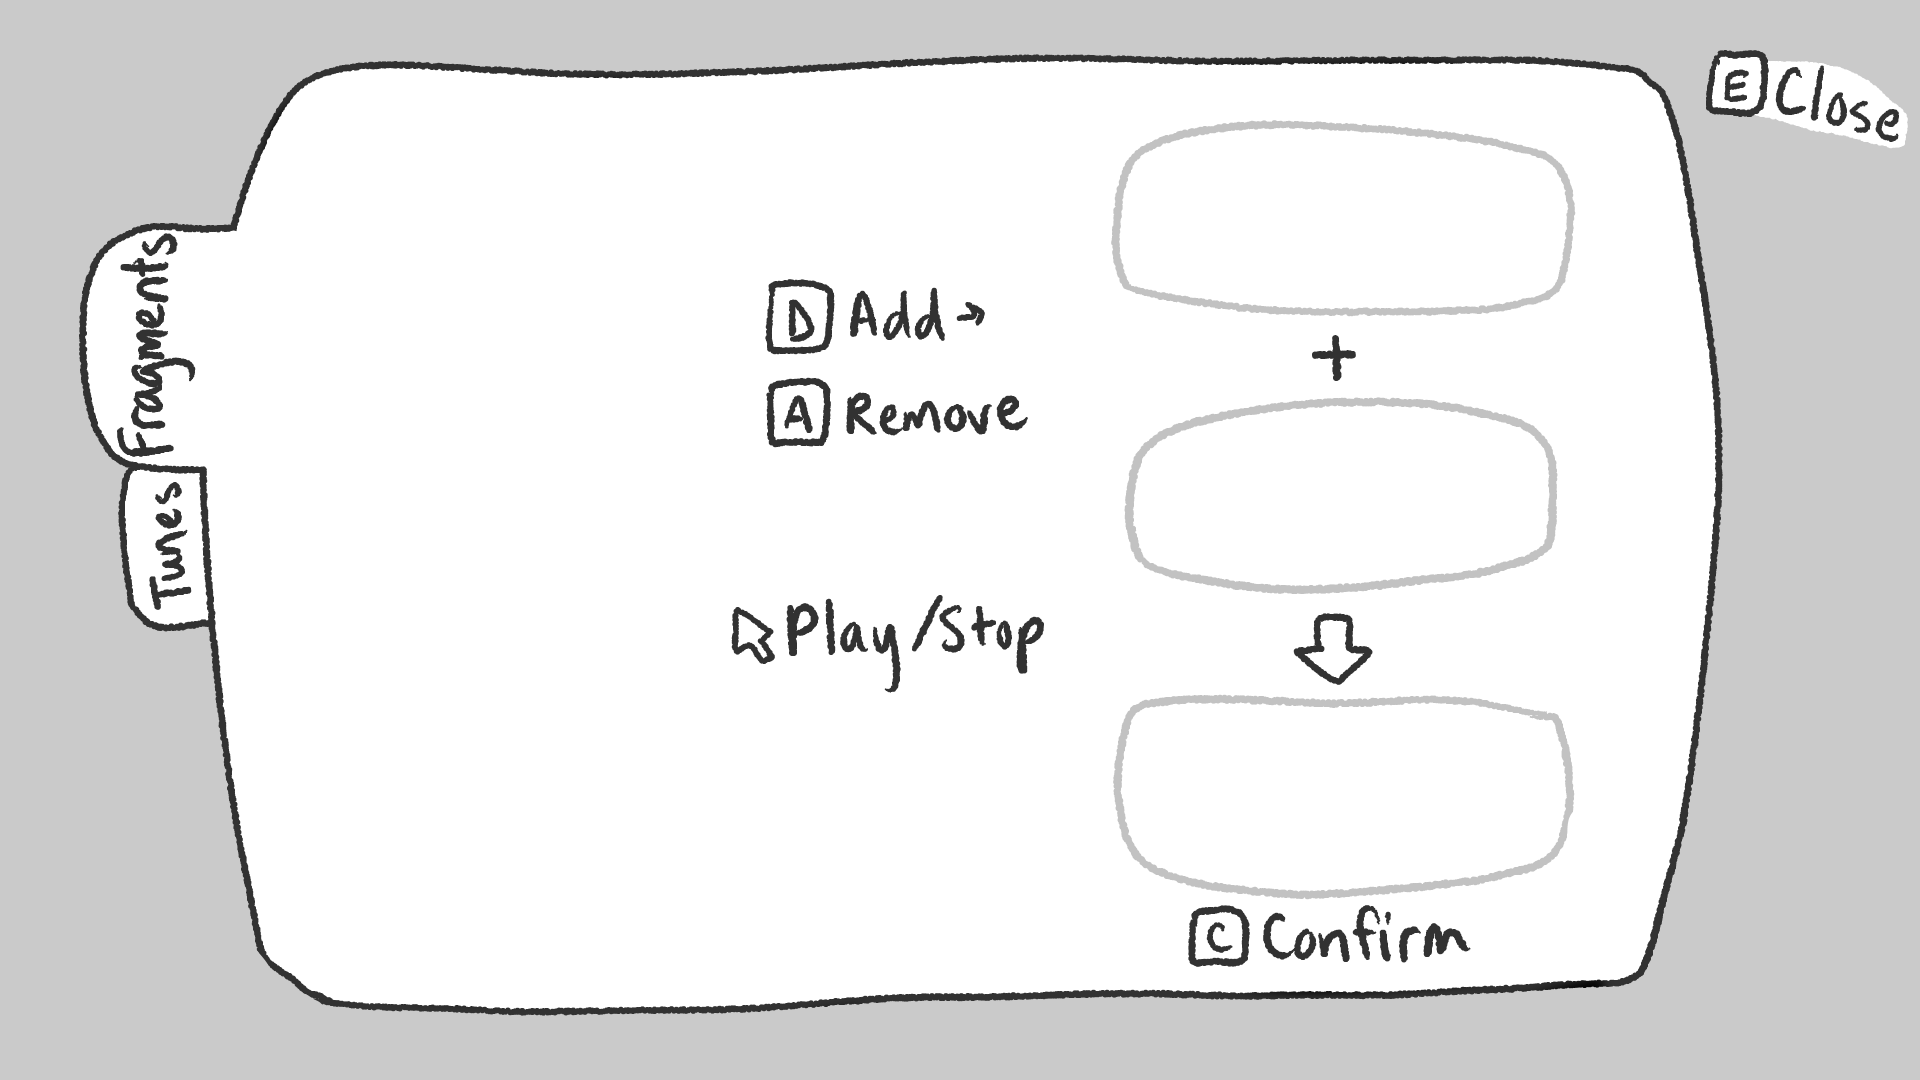 E Close
Fragments
Tunes
D Add →
A Remove
+
Play/Stop
C Confirm